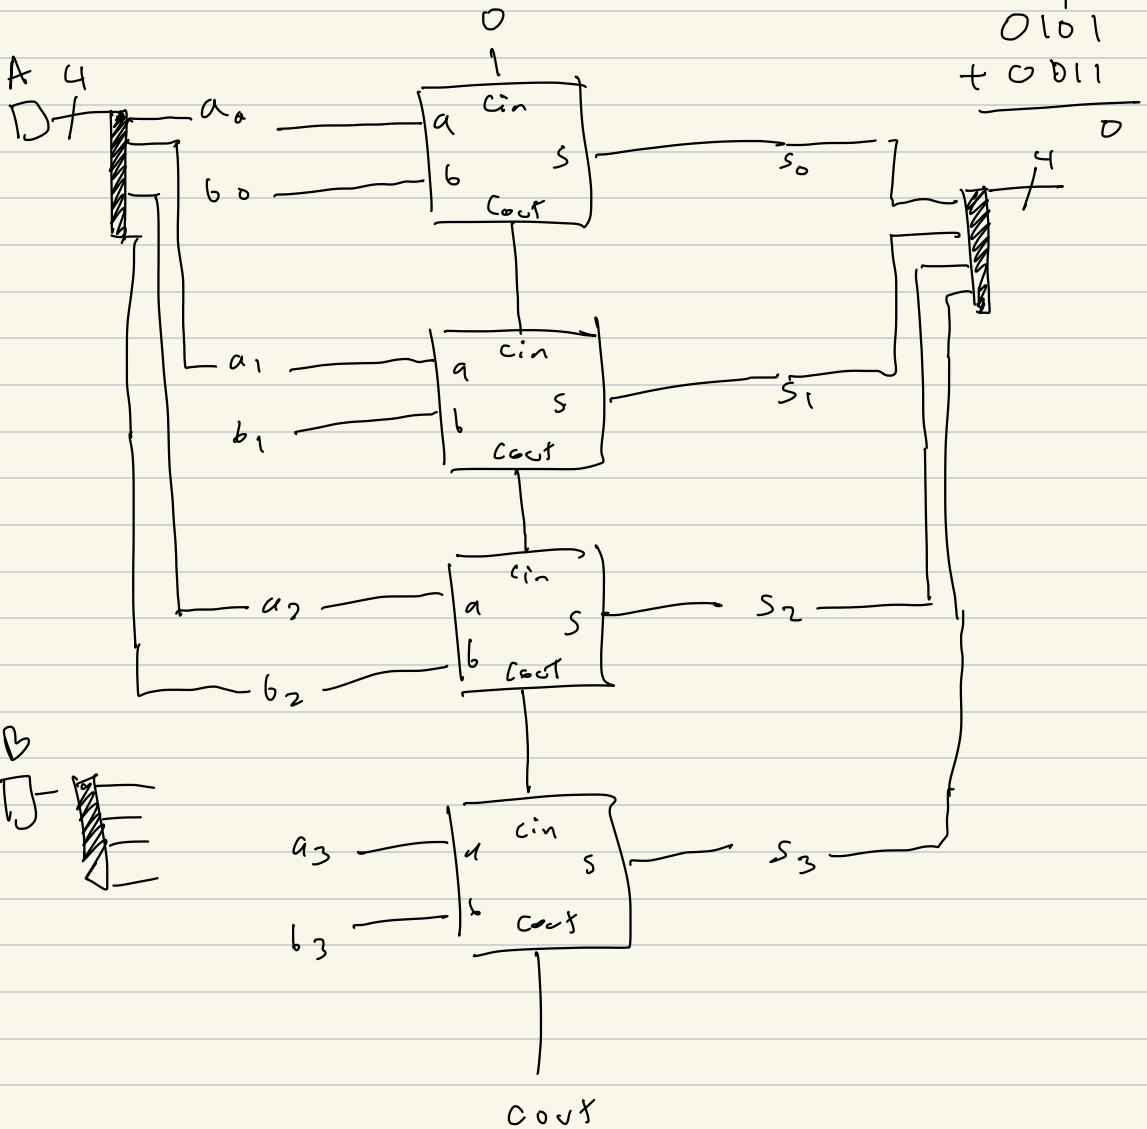 0
0101
+ 0011
0
A 4
a0
b0
Cin
a
b
S
Cout
S0
4
a1
b1
Cin
a
b
S
Cout
S1
a2
b2
Cin
a
b
S
Cout
S2
B
a3
b3
Cin
a
b
S
Cout
S3
Cout